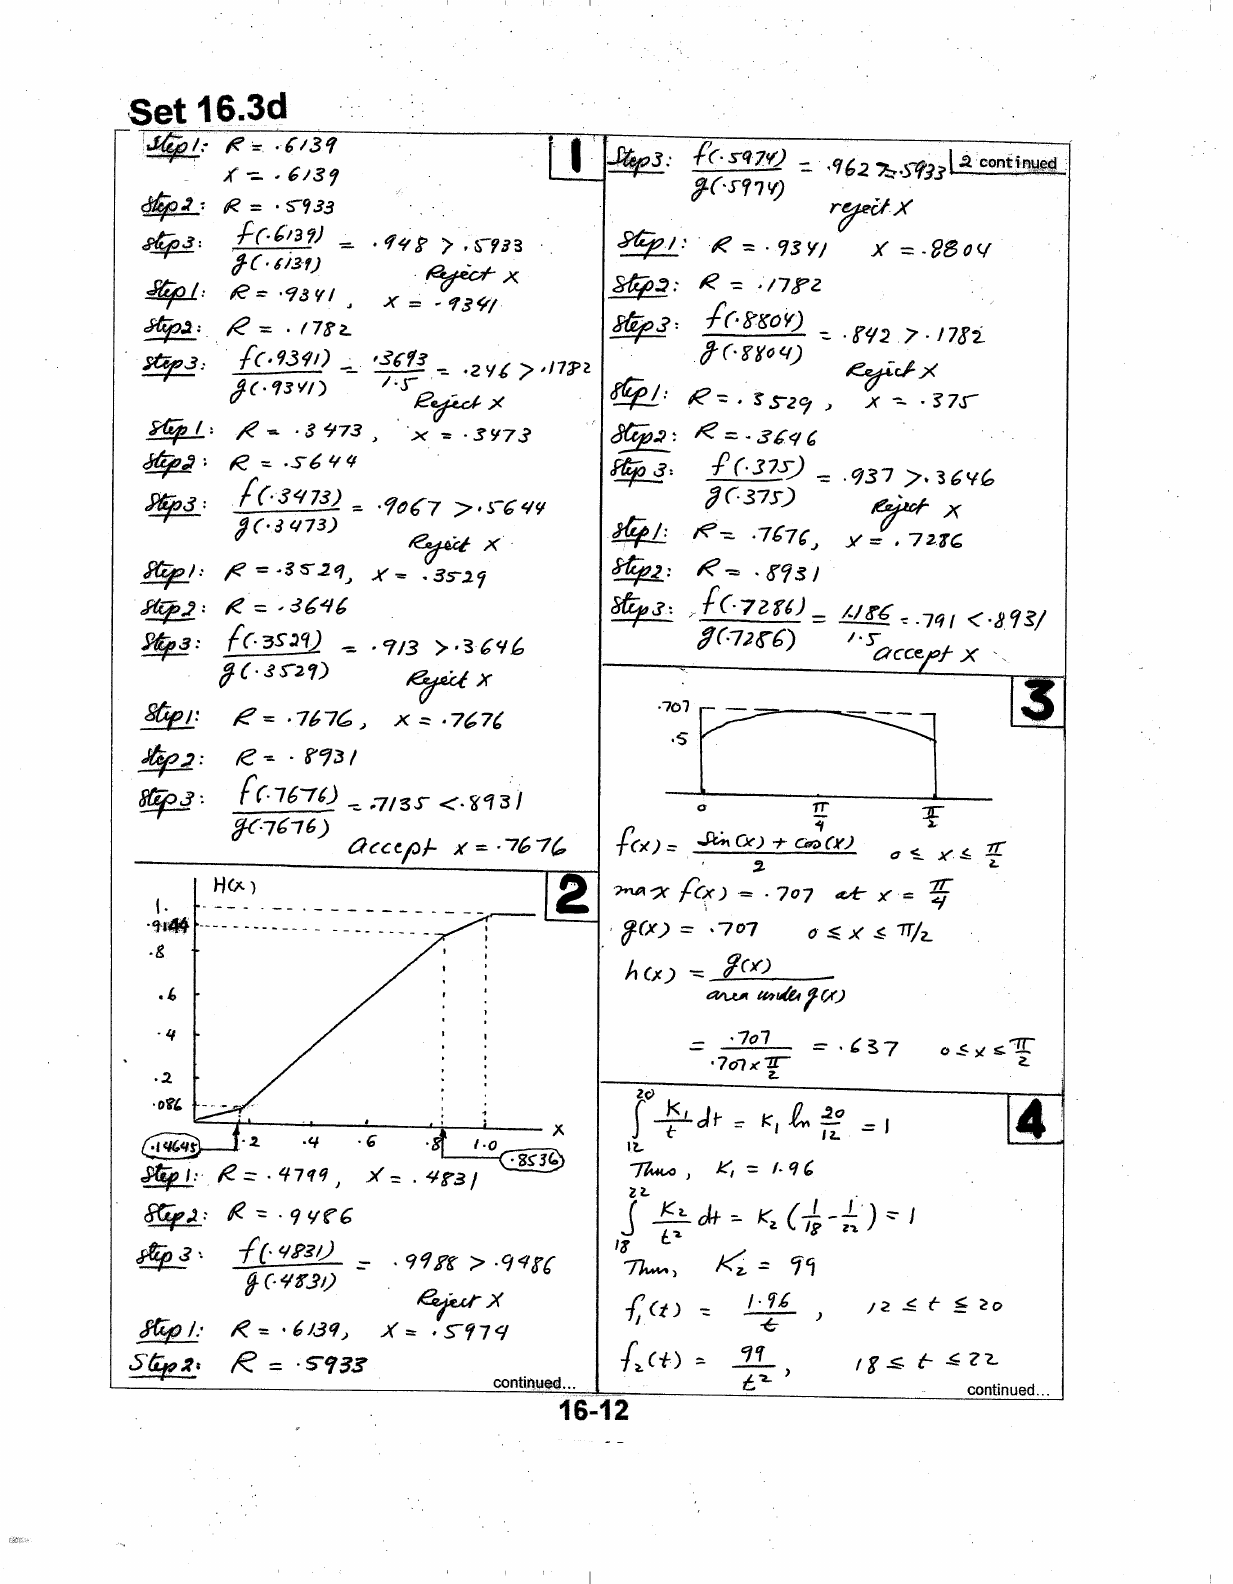 Set 16.3d
1
Step 1: R = .6139
x = .6139
Step 2: R = .5933
Step 3: f(.6139) / g(.6139) = .948 > .5933
Reject x
Step 1: R = .9341, x = .9341
Step 2: R = .1782
Step 3: f(.9341) / g(.9341) = .3693 / 1.5 = .246 > .1782
Reject x
Step 1: R = .3473, x = .3473
Step 2: R = .5644
Step 3: f(.3473) / g(.3473) = .9067 > .5644
Reject x
Step 1: R = .3529, x = .3529
Step 2: R = .3646
Step 3: f(.3529) / g(.3529) = .913 > .3646
Reject x
Step 1: R = .7676, x = .7676
Step 2: R = .8931
Step 3: f(.7676) / g(.7676) = .7135 < .8931
accept x = .7676
2
H(x)
1.
.9144
.8
.6
.4
.2
.086
.2 .4 .6 .8 1.0 x
.14645
.8536
Step 1: R = .4799, x = .4831
Step 2: R = .9486
Step 3: f(.4831) / g(.4831) = .9988 > .9486
Reject x
Step 1: R = .6139, x = .5974
Step 2: R = .5933
continued...
2 continued
Step 3: f(.5974) / g(.5974) = .962 > .5933
reject x
Step 1: R = .9341 x = .8804
Step 2: R = .1782
Step 3: f(.8804) / g(.8804) = .842 > .1782
Reject x
Step 1: R = .3529, x = .375
Step 2: R = .3646
Step 3: f(.375) / g(.375) = .937 > .3646
Reject x
Step 1: R = .7676, x = .7286
Step 2: R = .8931
Step 3: f(.7286) / g(.7286) = 1.186 / 1.5 = .791 < .8931
accept x
3
.707
.5
0 π/4 π/2
f(x) = sin(x) + cos(x) / 2 0 ≤ x ≤ π/2
max f(x) = .707 at x = π/4
g(x) = .707 0 ≤ x ≤ π/2
h(x) = g(x) / area under g(x)
= .707 / .707 x π/2 = .637 0 ≤ x ≤ π/2
4
∫₁₂²⁰ K₁/t dt = K₁ ln 20/12 = 1
Thus, K₁ = 1.96
∫₁₈²² K₂/t² dt = K₂ (1/18 - 1/22) = 1
Thus, K₂ = 99
f₁(t) = 1.96/t, 12 ≤ t ≤ 20
f₂(t) = 99/t², 18 ≤ t ≤ 22
continued...
16-12